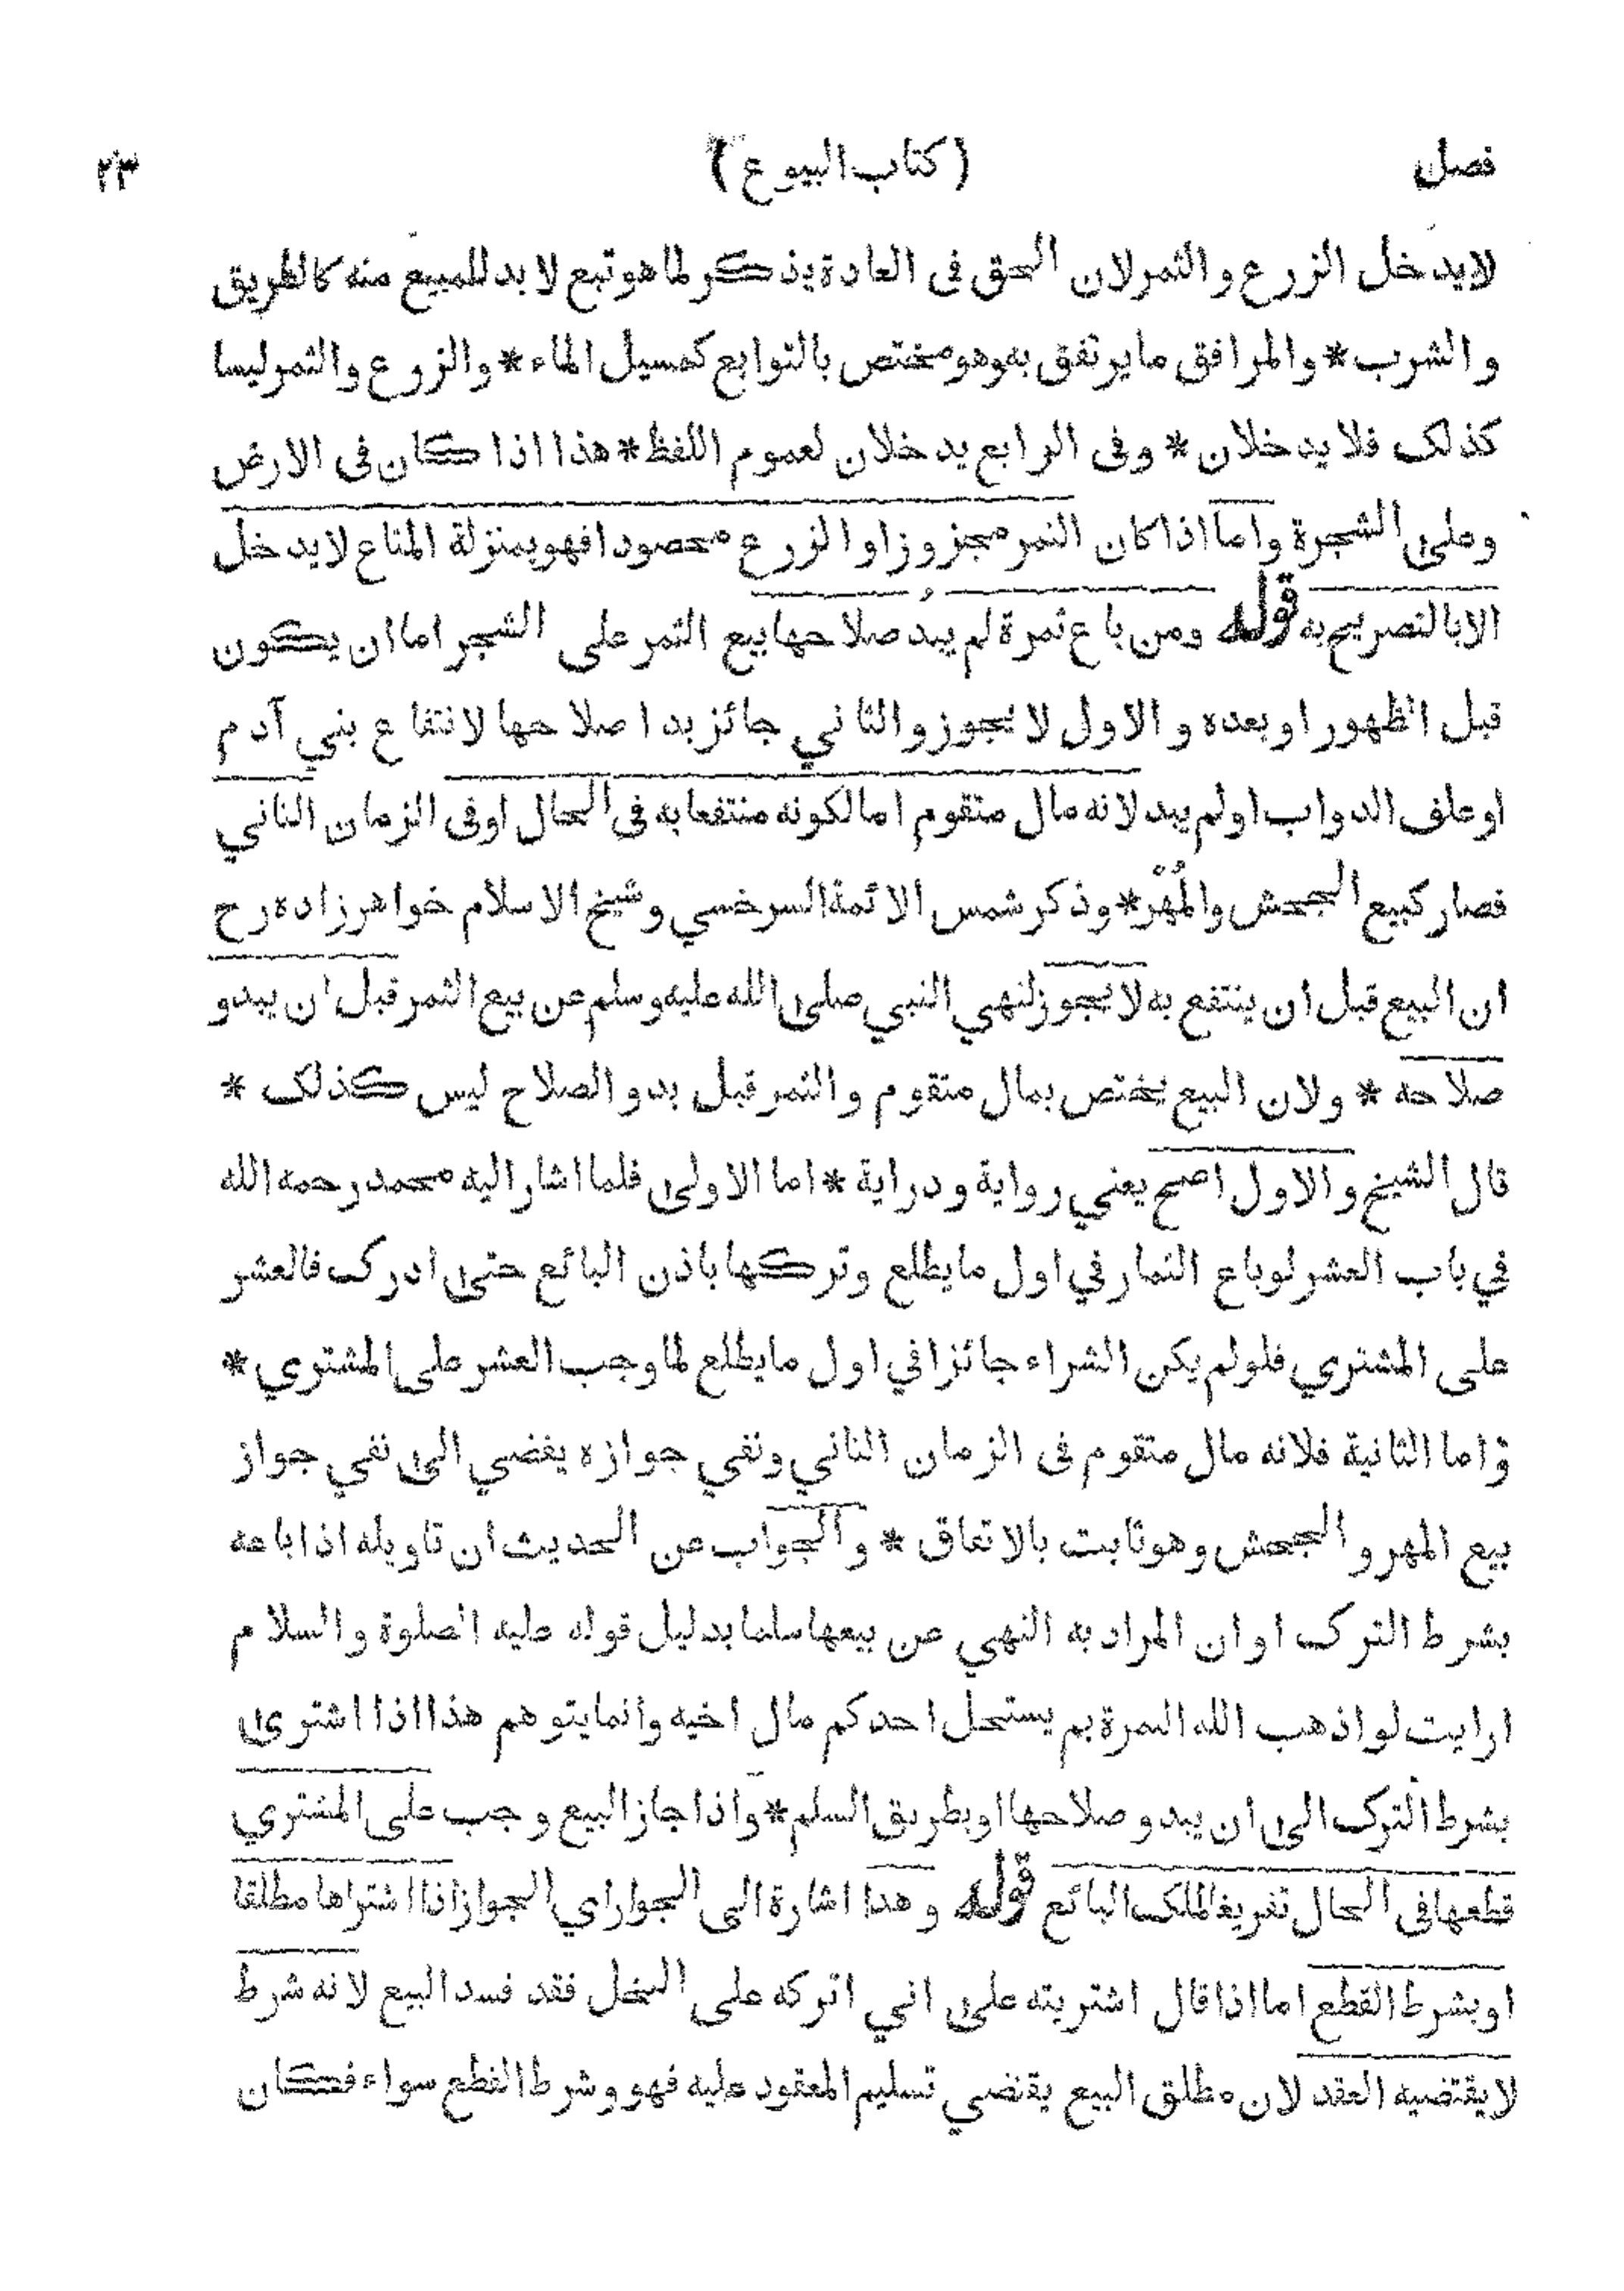 فصل (كتاب البيوع) ٢٣
لايدخل الزرع والثمر لان الحق فى العادة يذكر لما هو تبع لا بد للمبيع منه كالطريق
والشرب * والمرافق ما يرتفق به وهو مختص بالتوابع كمسيل الماء * والزرع والثمر ليسا
كذلك فلا يدخلان * وفى الرابع يدخلان لعموم اللفظ * هذا اذا كان فى الارض
وعلى الشجرة واما اذا كان الثمر مجزوزا والزرع محصودا فهو بمنزلة المتاع لا يدخل
الا بالتصريح به قوله ومن باع ثمرة لم يبد صلاحها بيع الثمر على الشجر اما ان يكون
قبل الظهور او بعده والاول لا يجوز والثاني جائز بدا صلاحها لانتفاع بني آدم
او علف الدواب او لم يبد لانه مال متقوم اما لكونه منتفعا به فى الحال او فى الزمان الثاني
فصار كبيع الجحش والمُهْر * وذكر شمس الائمة السرخسي وشيخ الاسلام خواهر زاده رح
ان البيع قبل ان ينتفع به لا يجوز لنهي النبي صلى الله عليه وسلم عن بيع الثمر قبل ان يبدو
صلاحه * ولان البيع يختص بمال متقوم والثمر قبل بدو الصلاح ليس كذلك *
قال الشيخ والاول اصح يعني رواية ودراية * اما الاولى فلما اشار اليه محمد رحمه الله
في باب العشر لو باع الثمار في اول ما يطلع وتركها باذن البائع حتى ادرك فالعشر
على المشتري فلو لم يكن الشراء جائزا في اول ما يطلع لما وجب العشر على المشتري *
واما الثانية فلانه مال متقوم فى الزمان الثاني ونفي جوازه يفضي الى نفي جواز
بيع المهر والجحش وهو ثابت بالاتفاق * والجواب عن الحديث ان تاويله اذا باعه
بشرط الترك او ان المراد به النهي عن بيعها سلما بدليل قوله عليه الصلوة والسلام
ارايت لو اذهب الله الثمرة بم يستحل احدكم مال اخيه وانما يتوهم هذا اذا اشترى
بشرط الترك الى ان يبدو صلاحها او بطريق السلم * واذا جاز البيع وجب على المشتري
قطعها فى الحال تفريغا لملك البائع قوله وهذا اشارة الى الجواز اي الجواز اذا اشتراها مطلقا
او بشرط القطع اما اذا قال اشتريته على اني اتركه على النخل فقد فسد البيع لانه شرط
لا يقتضيه العقد لان مطلق البيع يقتضي تسليم المعقود عليه فهو وشرط القطع سواء فكان